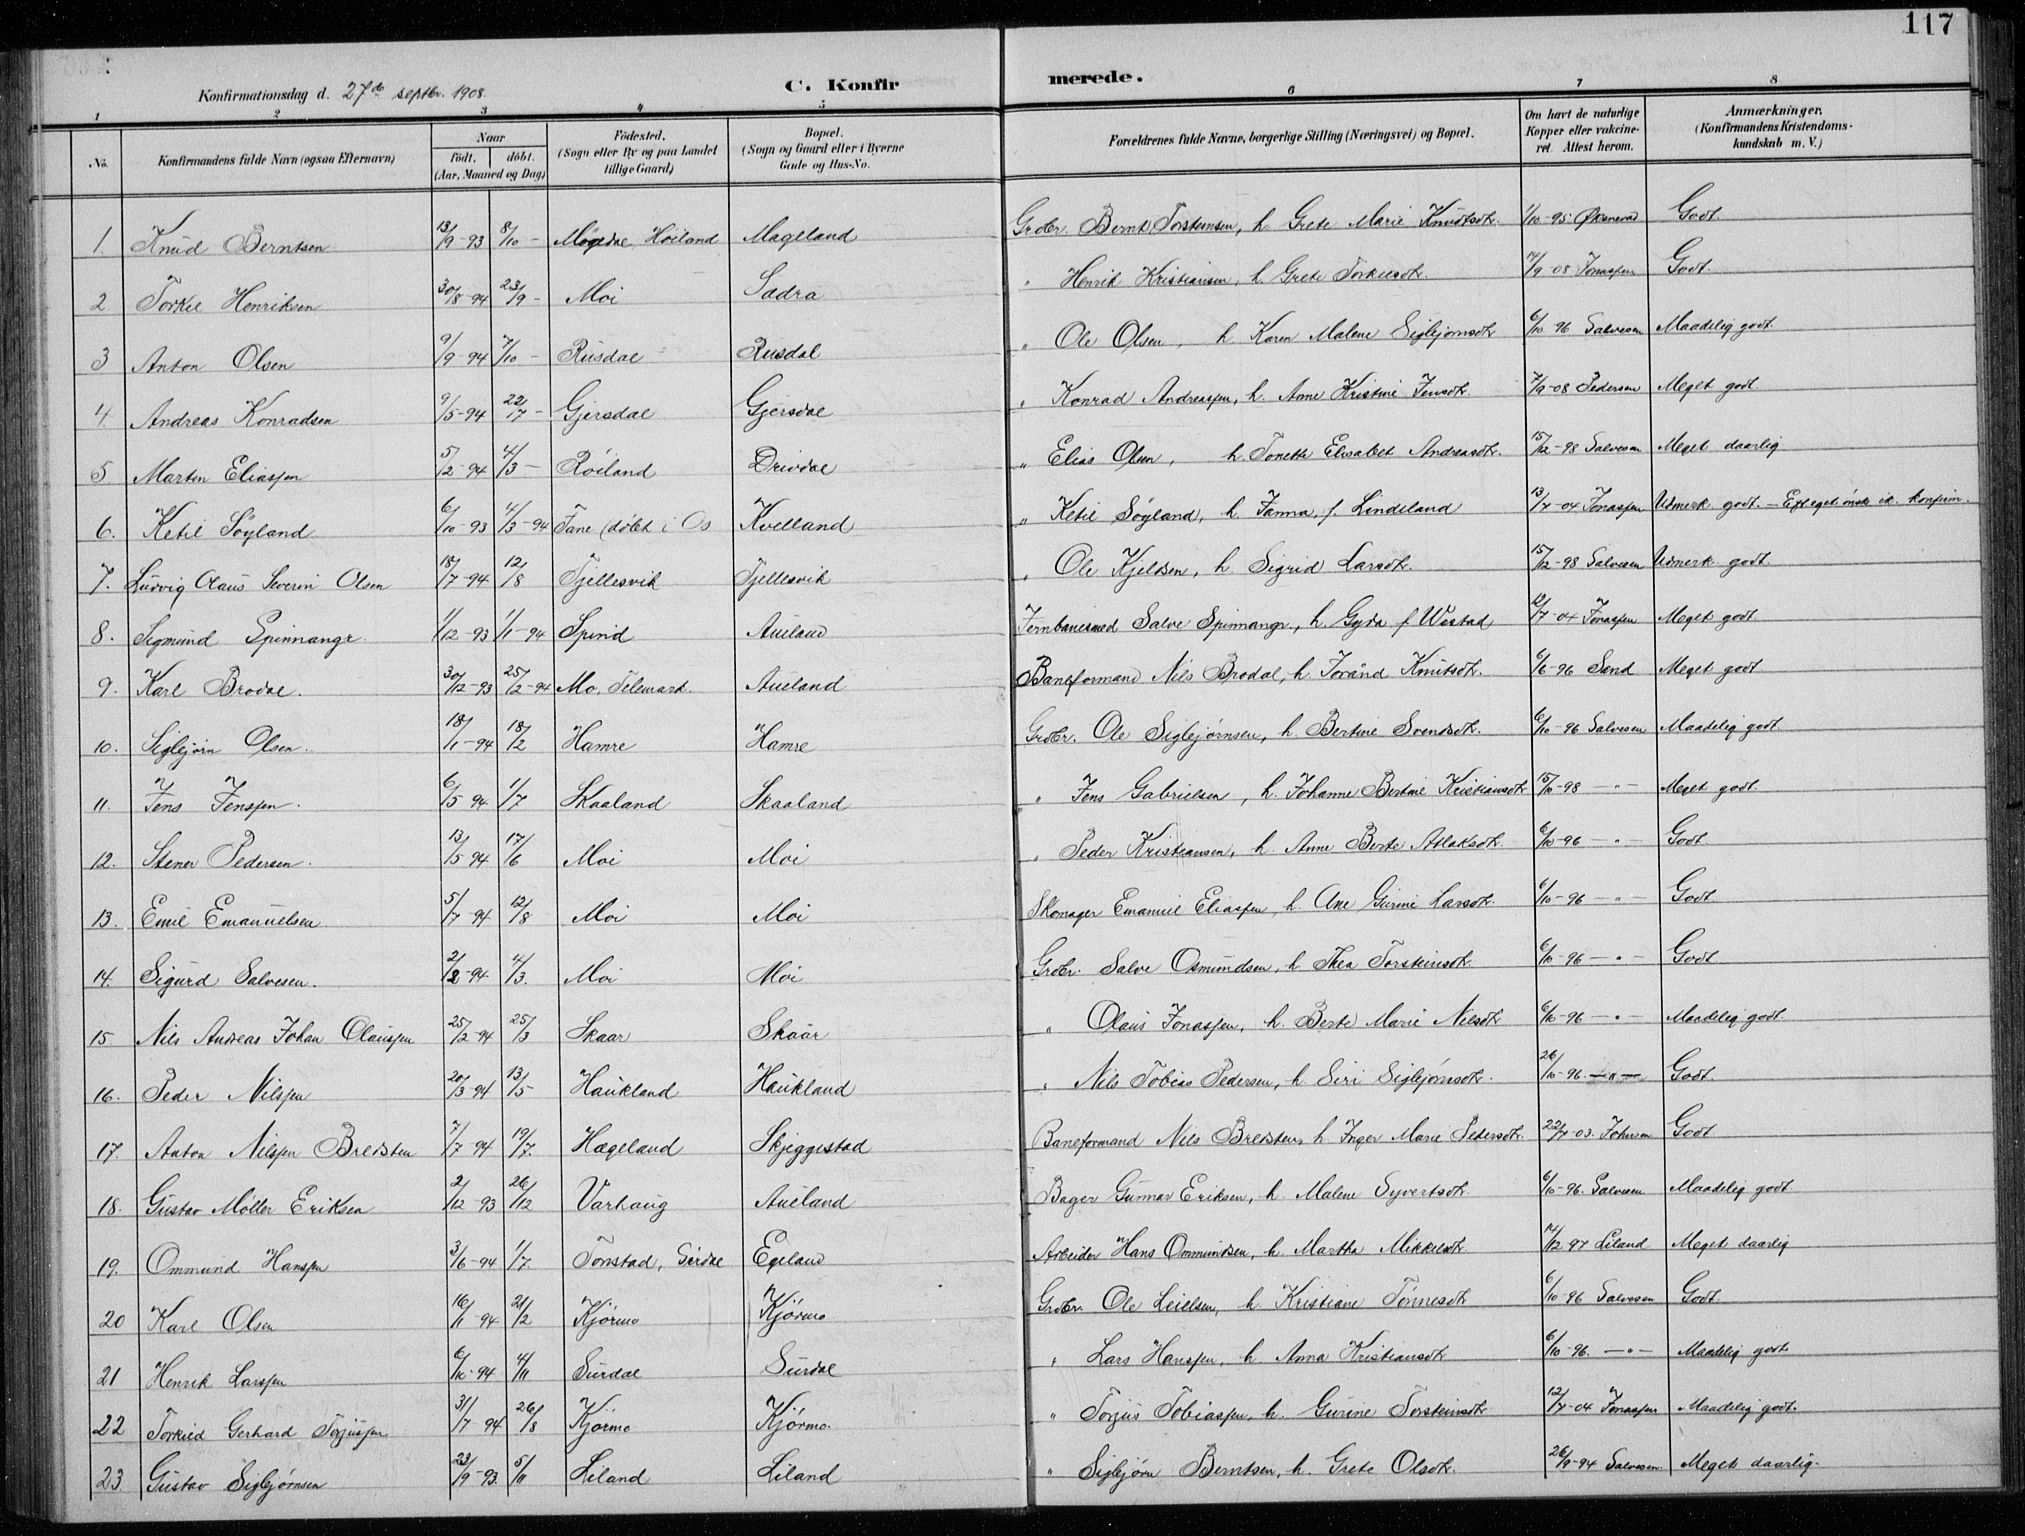 117
Konfirmationsdag d. 27de septbr. 1908.
C. Konfirmerede.
1 2 3 4 5 6 7 8
No. Konfirmandens fulde Navn (ogsaa Efternavn) Naar født. døbt. (Aar, Maaned og Dag) Fødested. (Sogn eller By og paa Landet tillige Gaard) Bopæl. (Sogn og Gaard eller i Byerne Gade og Hus-No. Forældrenes fulde Navne, borgerlige Stilling (Næringsvei) og Bopæl. Om havt de naturlige Kopper eller vakcineret. Attest herom. Anmærkninger. (Konfirmandens Kristendomskundskab m. V.)
1. Knud Berntsen 13/9-93 8/10 - Høiland Mageland Grdbr. Bernt Torsteinsen, h. Grete Marie Knudsdtr. 1/10-95 Øksnevad Godt
2. Torkel Henriksen 30/8-94 23/9 - Moi Sadra " Henrik Kristiansen, h. Grete Torkelsdtr. 14/9-08 Jonassen Godt.
3 Anton Olsen 9/9-94 7/10 - Rusdal Rusdal " Ole Olsen, h. Karen Malene Sigbjørnsdtr 6/10-96 Salvesen Maadelig godt.
4. Andreas Konradsen 9/5-94 22/7 - Gjersdal Gjersdal " Konrad Andreassen, h. Anne Kristine Jensdtr. 7/9-08 Pedersen Meget godt
5 Martin Eliassen 5/2-94 4/3 - Røiland Drivdal " Elias Olsen, h. Tonette Elisabet Andreasdtr. 15/12-98 Salvesen Meget daarlig
6. Ketil Søyland 6/10-93 4/3-94 Fane (døbt i Os Kvelland " Ketil Søyland, h. Janna, f. Lindeland 13/7-04 Jonassen Udmerk. godt. - Eft. eget ønsk. ik. konfirm.
7. Ludvig Olaus Severin Olsen 18/7-94 12/8 Tjellesvik Tjellesvik " Ole Kjeldsen, h. Sigrid Larsdtr. 15/12-98 Salvesen Udmerk. godt.
8. Sigmund Spinnangr. 1/12-93 1/1-94 Spind Aueland Jernbanesmed Salve Spinnangr, h. Gyda f. Westad 12/7-04 Jonassen Meget godt
9. Karl Brodal. 30/12-93 25/2-94 Mo, Telemark. Aueland Baneformand Nils Brodal, h. Jorånd Knutsdtr. 6/6-96 Sand Meget godt
10. Sigbjørn Olsen. 18/1-94 18/2 Hamre Hamre Grdbr. Ole Sigbjørnsen, h. Bertine Svendsdtr. 6/10-96 Salvesen Maadelig godt.
11. Jens Jenssen. 6/5-94 1/7 Skaaland Skaaland " Jens Gabrielsen, h. Johanne Bertine Kristiansdtr 15/10-98 - " - Meget godt.
12. Stener Pedersen. 13/5-94 17/6 Moi Moi " Peder Kristiansen, h. Anne Berte Atlaksdtr. 6/10-96 - " - Godt.
13. Emil Emanuelsen. 5/7-94 12/8 Moi Moi Skomager Emanuel Eliassen, h. Ane Gurine Larsdtr. 6/10-96 - " - Godt
14. Sigurd Salvesen. 2/2-94 4/3. Moi Moi Grdbr. Salve Osmundsen, h. Thea Torsteinsdtr. 6/10-96 - " - Godt
15 Nils Andreas Johan Olaussen 25/2-94 25/3 Skaar Skaar " Olaus Jonassen, h. Berte Marie Nilsdtr 6/10-96 - " - Maadelig godt.
16. Peder Nilssen 20/3-94 13/5 Haukland Haukland " Nils Tobias Pedersen, h. Siri Sigbjørnsdtr. 26/10-96. - " - Godt.
17. Anton Nilssen Bredsten 7/7-94 19/7. Hægeland Skjeggestad Baneformand Nils Bredsten, h. Inger Marie Pedersdtr. 22/7-03. Johnsen Godt
18. Gustav Møller Eriksen 2/12-93 26/12 Varhaug Aueland Bager Gunnar Eriksen, h. Malene Syvertsdtr. 6/10-96. Salvesen Maadelig godt
19. Ommund Hanssen 3/6-94 1/7. Tonstad, Sirdal Egeland Arbeider Hans Ommundsen, h. Martha Mikkelsdtr 14/12-97 Liland Meget daarlig
20 Karl Olsen 16/1-94 21/2 Kjørmo Kjørmo Grdbr. Ole Leielsen, h. Kristiane Tønnesdtr 6/10-96 Salvesen Godt.
21 Henrik Larssen 6/10-94 4/11 Surdal Surdal " Lars Hanssen, h. Anna Kristiansdtr 6/10-96. - " - Maadelig godt.
22 Torkild Gerhard Torjussen 31/7-94 26/8 Kjørmo Kjørmo. " Torjus Tobiassen, h. Gurine Torsteinsdtr 12/7-04 Jonassen Maadelig godt.
23 Gustav Sigbjørnsen 23/9-93. 5/11 Liland Liland " Sigbjørn Berntsen, h. Grete Olsdtr. 26/9-94 Salvesen Meget daarlig.